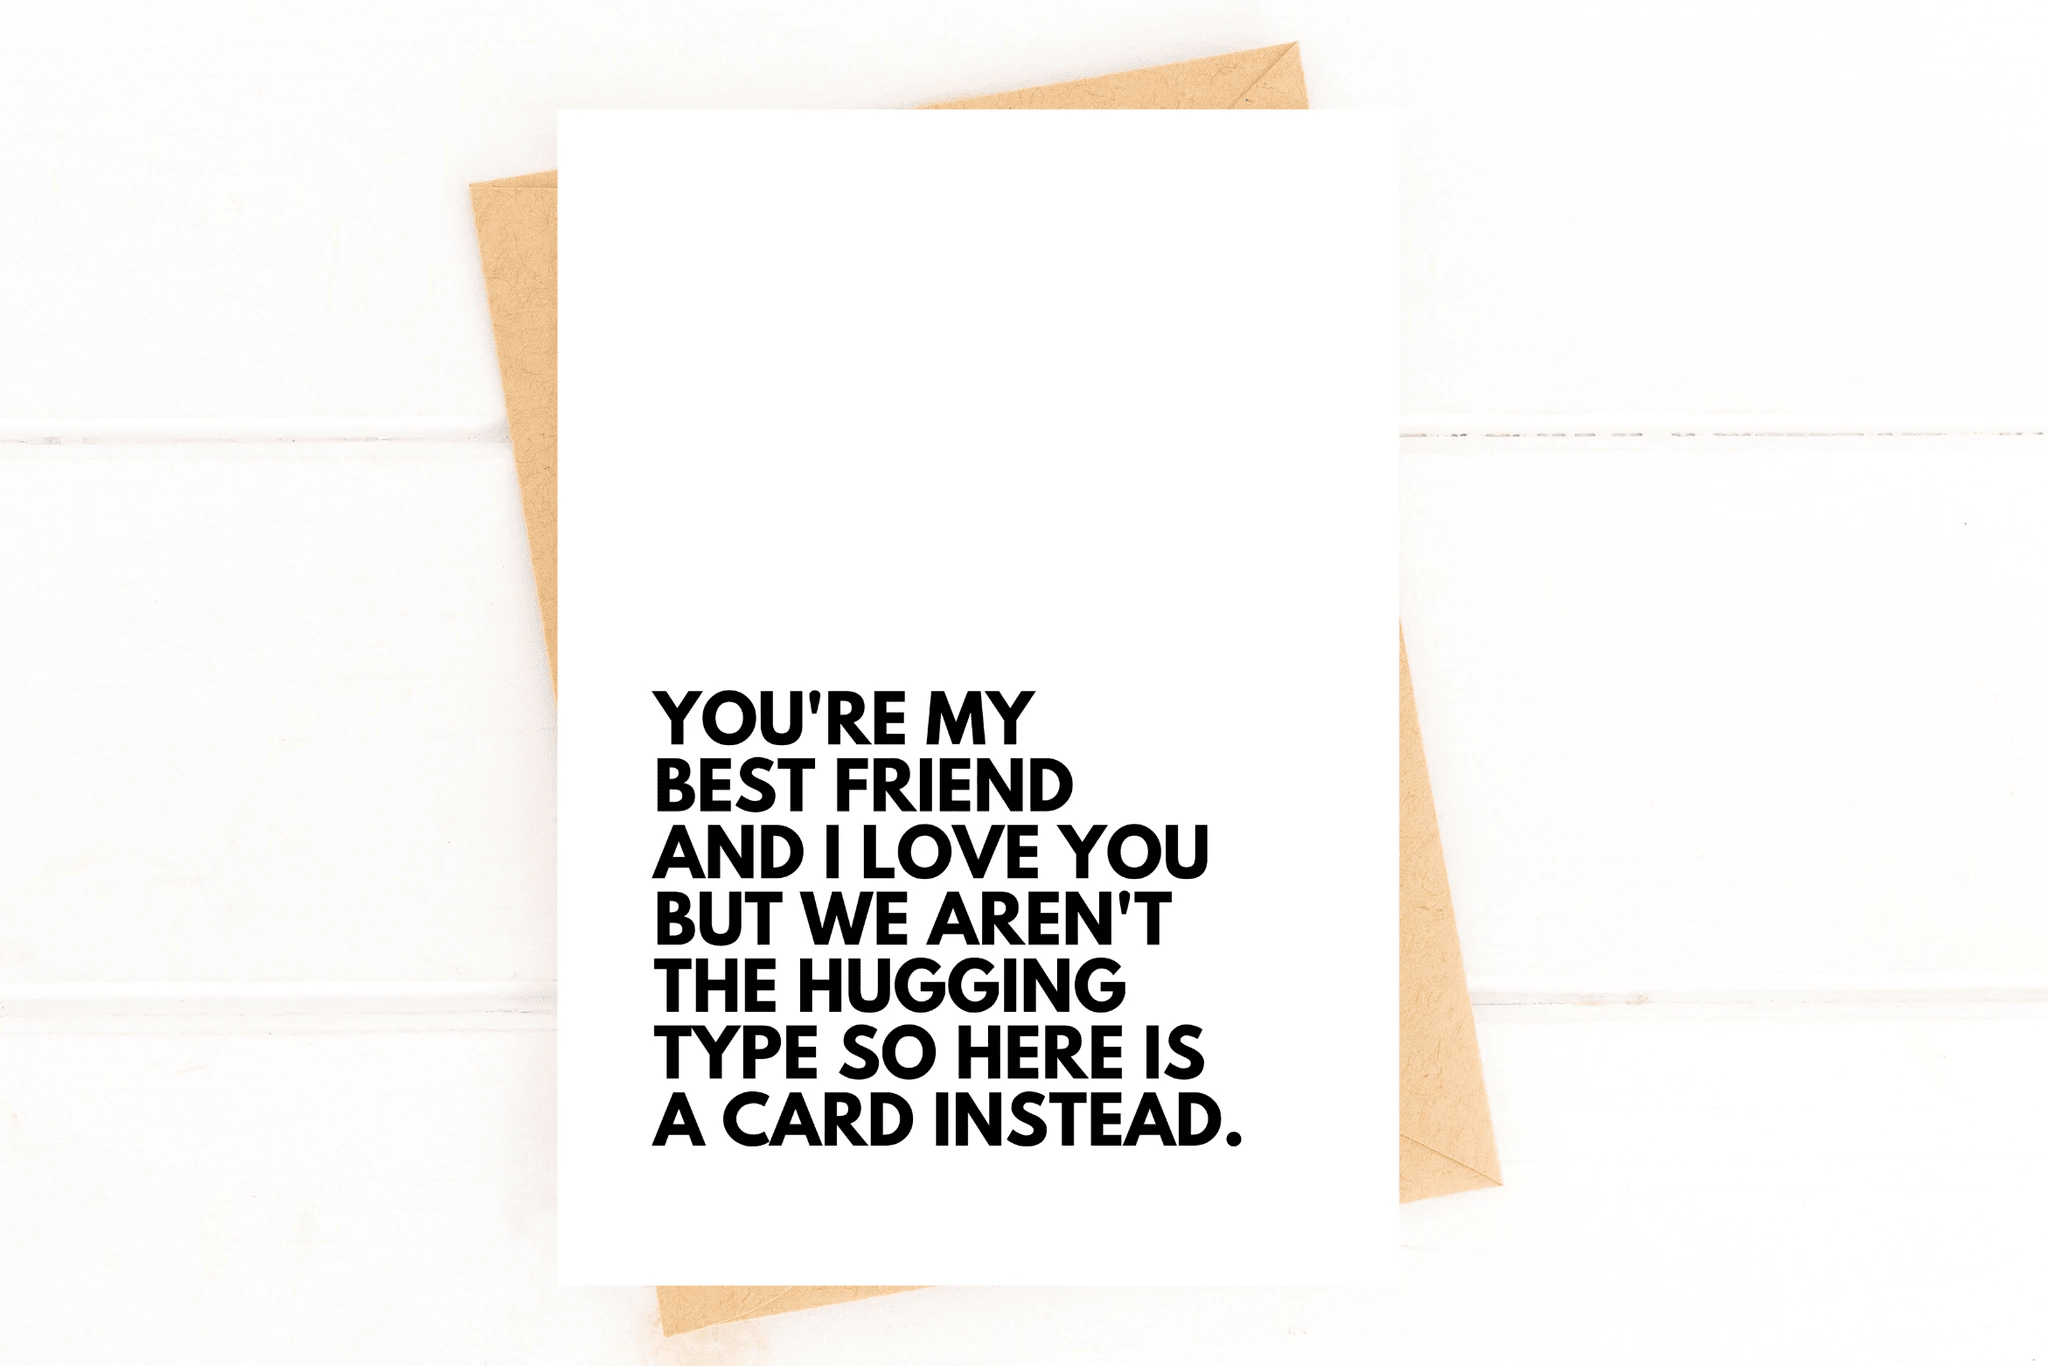 YOU'RE MY
BEST FRIEND
AND I LOVE YOU
BUT WE AREN'T
THE HUGGING
TYPE SO HERE IS
A CARD INSTEAD.